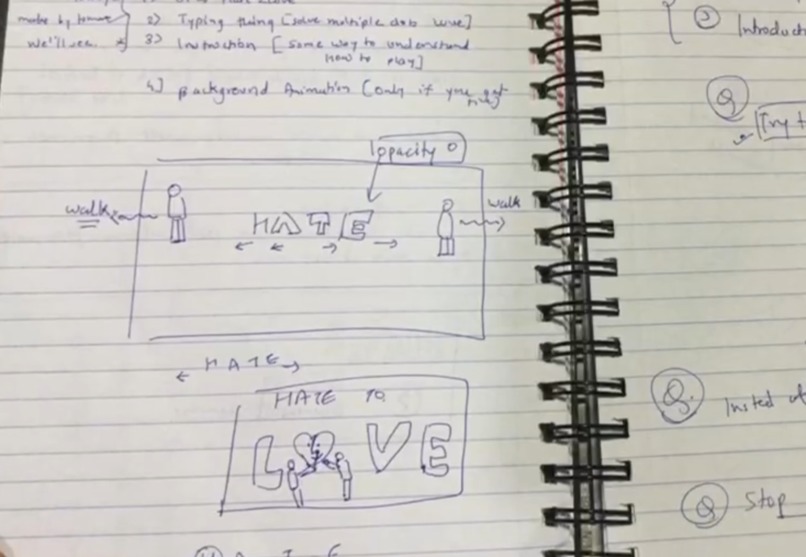 we'll see.
2) Typing thing [solve multiple clots wise]
3) Instruction [some way to understand
how to play]
4] Background Animation [only if you get
time]
opacity 0
walk
HATE
walk
HATE
HATE TO
LOVE
3
Introducti
Q
Try t
Q.
Insted of
Q
Stop